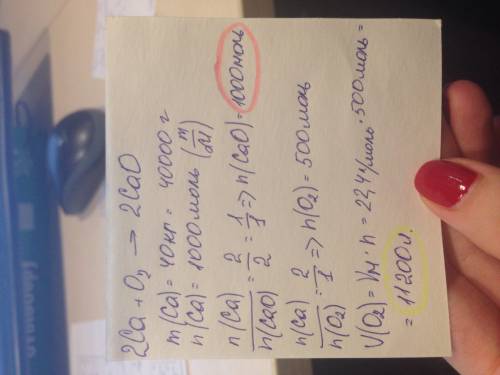 2Ca + O₂ → 2CaO
m(Ca) = 40кг = 40000 г
n(Ca) = 1000 моль (m/M)
n(Ca)/n(CaO) = 2/2 = 1/1 => n(CaO) = 1000 моль
n(Ca)/n(O₂) = 2/1 => n(O₂) = 500 моль
V(O₂) = Vм · n = 22,4 л/моль · 500 моль =
= 11200 л.